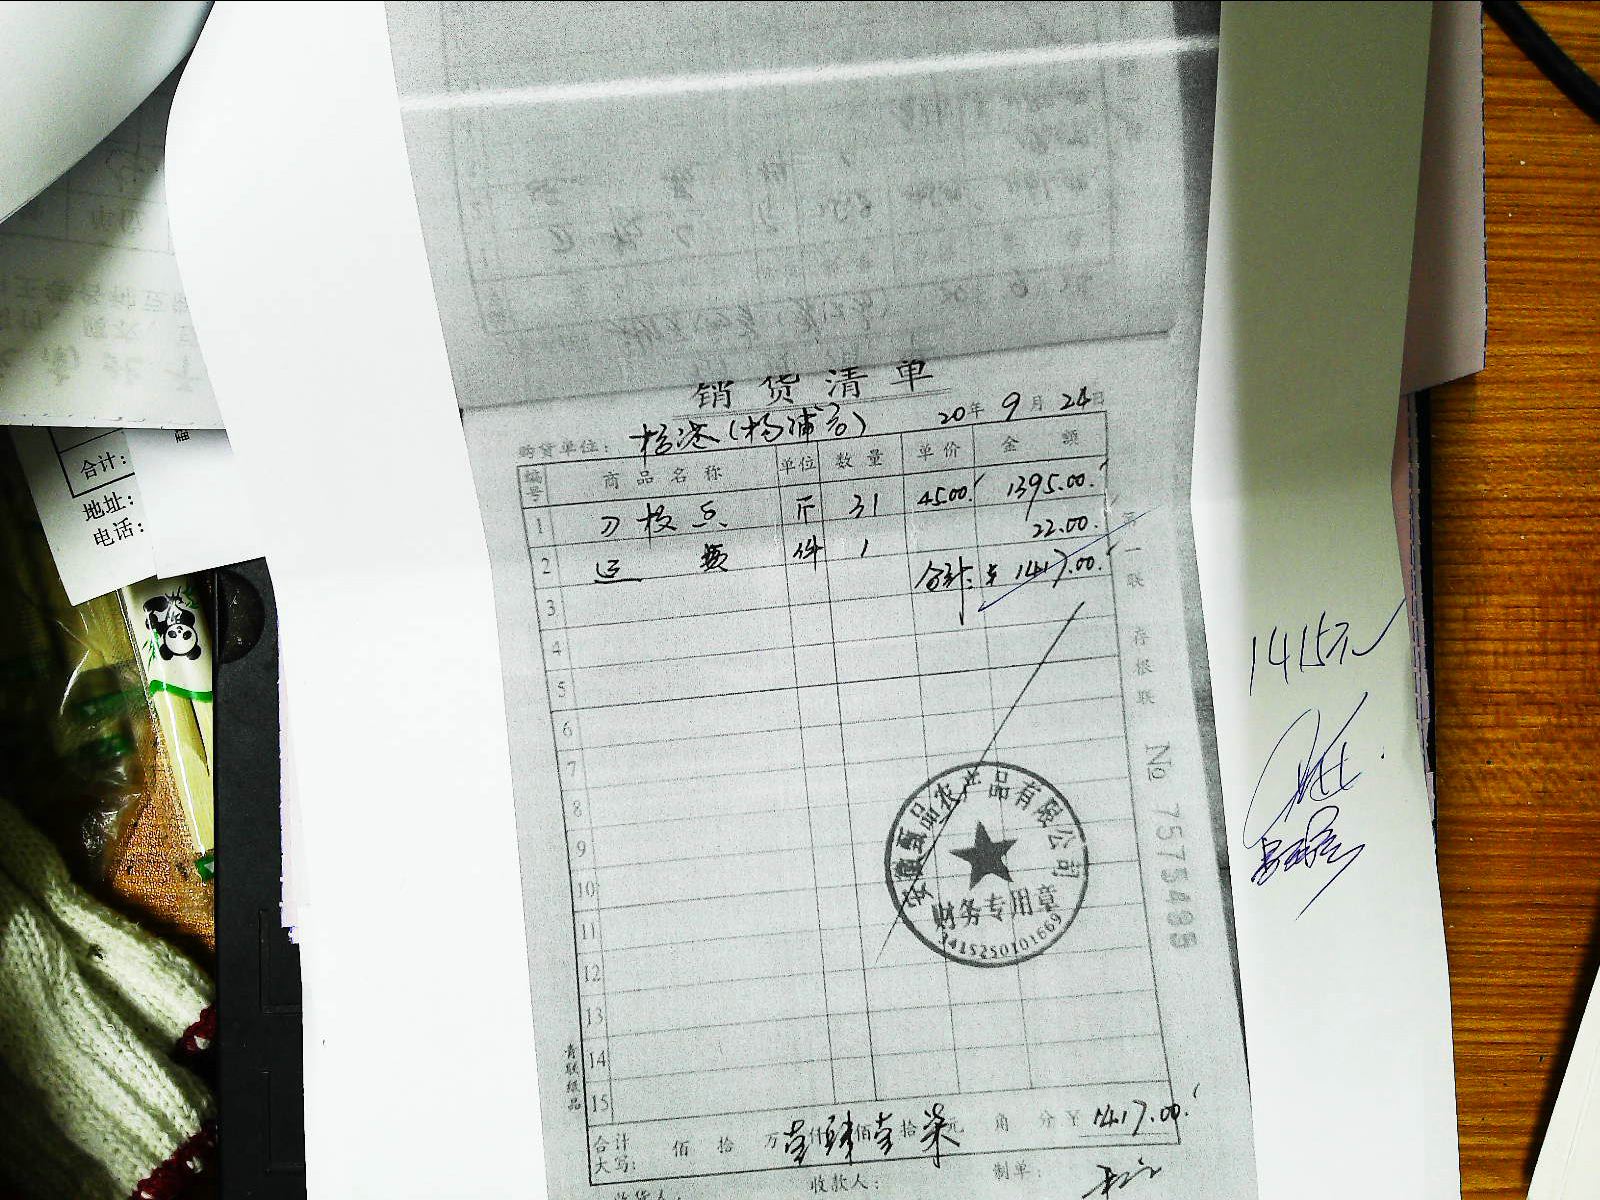 销货清单
购货单位: 20年 9月 24日
编号 商品名称 单位 数量 单价 金额
1 斤 31 45.00 1395.00
2 运 件 1 22.00
合计: ¥ 1417.00
3
4
5
6
7
8
9
10
11
12
13
14
15
合计大写: 佰 拾 万 壹仟 肆佰 壹拾 柒元 角 分 ¥ 1417.00
收货人: 收款人: 制单:
第一联 存根联
№ 7575485
安徽甄品农产品有限公司
财务专用章
3415250101669
青联纸品
1415元
合计:
地址:
电话: